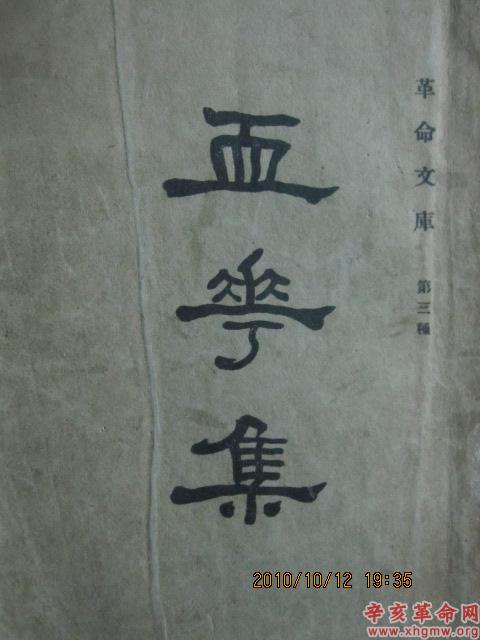 革命文庫 第三種
血華集
2010/10/12 19:35
辛亥革命网
www.xhgmw.org